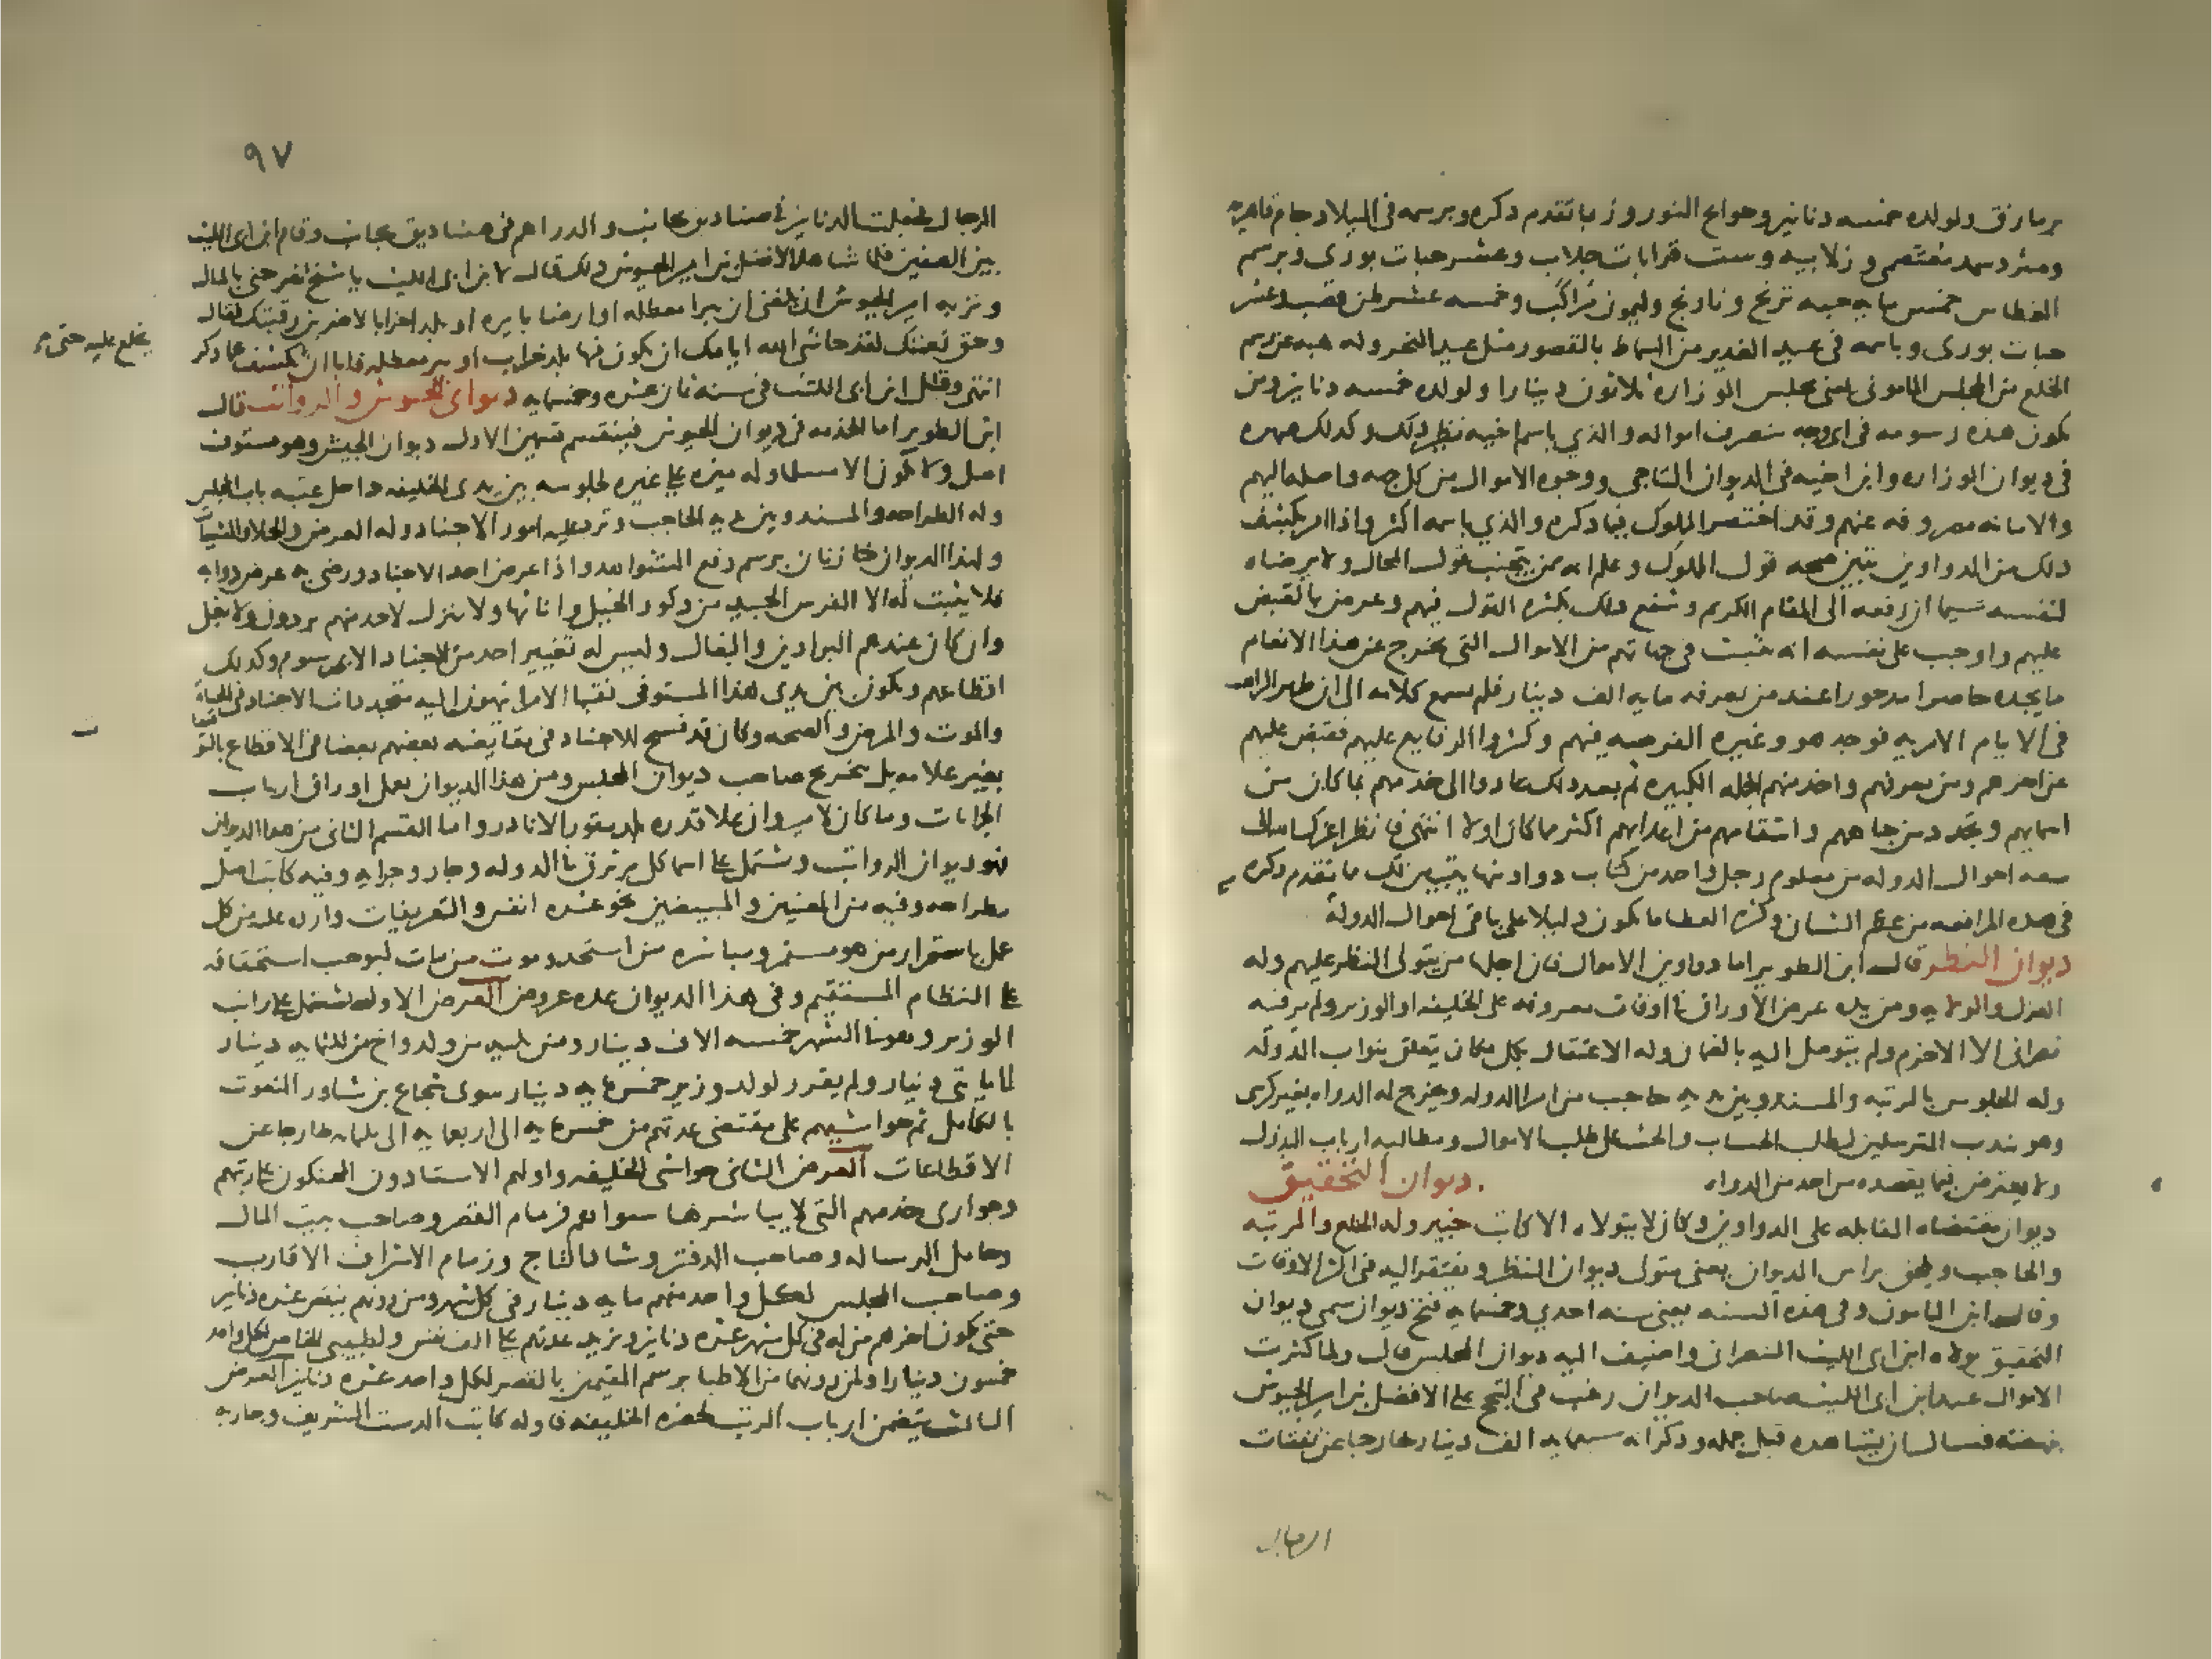 برمارزق ولولده خمسه دنانير وحوايج النوروز بما تقدم ذكره وبرسمه فى الميلاد جام قاهريه
ومثرد سمد معتصمى وزلابيه وست قرابات جلاب وعشر حبات بورى وبرسم
الغطاس خمس مايه حبه ترنج ونارنج وليمون مراكب وخمسه عشر طن قصب وعشر
حبات بورى وباسمه فى عيد الغدير من السماط بالقصور مثل عيد النحر وله هبه عن رسم
الخلع من المجلس المامونى يعنى مجلس الوزاره ثلاثون دينارا ولولده خمسه دنانير ومن
تكون هذه رسومه فى اى وجه تنصرف امواله والذي باسم اخيه نظير ذلك وكذلك صهره
فى ديوان الوزاره وابن اخيه فى الديوان التاجى ووجوه الاموال من كل جهه واصله اليهم
والامانه مصروفه عنهم وقد اختصر المملوك فيما ذكره والذي باسمه اكثر واذا امر بكشف
ذلك من الدواوين تبين صحه قول المملوك وعلم انه ممن يتجنب قول المحال ولا يرضاه
لنفسه سيما ان رفعه الى المقام الكريم وشفع ذلك بكثره القول فيهم وعرض بالقبض
عليهم واوجب على نفسه انه يثبت فى جهاتهم من الاموال التى تخرج عن هذا الانعام
ما يجده حاضرا مدخورا عند من يعرفه مايه الف دينار فلم يسمع كلامه الى ان ظهر الراهب
فى الايام الامريه فوجد هو وغيره الفرصه فيهم وكثروا الوقايع عليهم فقبض عليهم
عن اخرهم ومن يعرفهم واخذ منهم الجمله الكبيره ثم بعد ذلك عادوا الى خدمهم بما كان من
اسمايهم وتجدد من جاههم وانتقامهم من اعدايهم اكثر مما كان اولا انتهى فانظر اعزك الله الى
سعه احوال الدوله من معلوم رجل واحد من كتاب دواوينها يتبين لك ما تقدم ذكره
فى هذه المرافعه من عظم الشان وكثره العطا ما يكون دليلا على باقى احوال الدولة
ديوان النظر قال ابن الطوير اما دواوين الاموال فان اجلها من يتولى النظر عليهم وله
العزل والولايه ومن يده عرض الاوراق فى اوقات معروفه على الخليفه او الوزير ولم ير فيه
نصرانى الا الاخرم ولم يتوصل اليه الا بالضمان وله الاعتقال بكل مكان يتعلق بنواب الدوله
وله الجلوس بالمرتبه والمسند وبين يديه حاجب من امرا الدوله وتخرج له الدواه بغير كرسى
وهو يندب المترسلين لطلب الحساب والحث على طلب الاموال ومطالبه ارباب الدول
ولا يعترض فيما يقصده من احد من الدوله
ديوان التحقيق
ديوان مقتضاه المقابله على الدواوين وكان لا يتولاه الا كاتب خبير وله الخلع والمرتبه
والحاجب ويلحق براس الديوان يعنى متولى ديوان النظر ويفتقر اليه فى اكثر الاوقات
وقال ابن المامون وفى هذه السنه يعنى سنه احدى وخمسمايه فتح ديوان سمى ديوان
التحقيق يتولاه ابن ابى الليث النصرانى واضيف اليه ديوان المجلس قال ولما كثرت
الاموال عند ابن ابى الليث صاحب الديوان رغب فى التبجح على الافضل بن امير الجيوش
بنهضته فسال ان يشاهده قبل حمله وذكر انه سبعمايه الف دينار خارجا عن نفقات
الرجال
٩٧
الرجال فجعلت الدنانير فى صناديق بجانب والدراهم فى صناديق بجانب وقام ابن ابى الليث
بين الصفين فلما شاهد الافضل بن امير الجيوش ذلك قال لابن ابى الليث يا شيخ تفرحنى بالمال
وتربه امير الجيوش ان بلغنى ان بيرا معطله او ارضا بايره او بلد اخرابا لاضربن رقبتك فقال
وحق نعمتك لقد حاشى الله ايامك ان يكون فيها بلد خراب او بير معطله فابا ان يكشف عما ذكر
يخلع عليه حتى م
انتهى وقتل ابن ابى الليث فى سنه ثمان عشره وخمسمايه ديوان الجيوش والرواتب قال
ابن الطوير اما الخدمه فى ديوان الجيوش فينقسم قسمين الاول ديوان الجيش وهو مستوف
اصل ولا يكون الا مسلما وله ميزه على غيره لجلوسه بين يدى الخليفه داخل عتبه باب المجلس
وله الطراحه والمسند وبين يديه الحاجب وترد عليه امور الاجناد وله العرض والحلا والشيات
ولهذا الديوان خازنان برسم رفع الشواهد واذا عرض احد الاجناد ورضى به عرض دوابه
فلا يثبت له الا الفرس الجيد من ذكور الخيل واناثها ولا ينزل لاحد منهم برذون ولا بغل
وان كان عندهم البراذين والبغال وليس له تغيير احد من الاجناد الا بمرسوم وكذلك
اقطاعهم ويكون بين يدى هذا المستوفى نقبا الامرا ينهون اليه متجددات الاجناد فى الحياة
والموت والمرض والصحه وكان قد فسح للاجناد فى مقايضه بعضهم بعضا فى الاقطاع بالتوقيعات
بغير علامه بل بتخريج صاحب ديوان المجلس ومن هذا الديوان تعمل اوراق ارباب
الجرايات وما كان لامير وان علا قدره بلد مقور الا نادر واما القسم الثانى من هذا الديوان
فهو ديوان الرواتب ويشتمل على اسما كل مرتزق فى الدوله وجار وجرايه وفيه كاتب اصل
بطراحه وفيه من المعينين والمبيضين نحو عشره انفس والتعريفات وارده عليه من كل
عمل باستمرار من هو مستمر ومباشره من استجد وموت من مات ليوجب استحقاقه
على النظام المستقيم وفى هذا الديوان عده عروض العرض الاول يشتمل على راتب
الوزير وهو فى الشهر خمسه الاف دينار ومن يليه من ولد واخ من ثلثمايه دينار
الى مايتى دينار ولم يقرر لولد وزير خمسمايه دينار سوى شجاع بن شاور المنعوت
بالكامل ثم حواشيهم على مقتضى عدتهم من خمسمايه الى اربعمايه الى ثلثمايه خارجا عن
الاقطاعات العرض الثانى حواشى الخليفه واولهم الاستادون المحنكون على رتبهم
وجوارى خدمهم التى لا يباشرها سواهم فزمام القصر وصاحب بيت المال
وحامل الرساله وصاحب الدفتر وشاد التاج وزمام الاشراف الاقارب
وصاحب المجلس لكل واحد منهم مايه دينار فى كل شهر ومن دونهم ينقص عشره دنانير
حتى يكون اخرهم من له فى كل شهر عشره دنانير وتزيد عدتهم على الف نفس ولطبيبى الخاص لكل واحد
خمسون دينارا ولمن دونهما من الاطبا برسم المقيمين بالقصر لكل واحد عشره دنانير العرض
الثالث يتضمن ارباب الرتب بحضره الخليفه فاوله كاتب الدست الشريف وجاريه